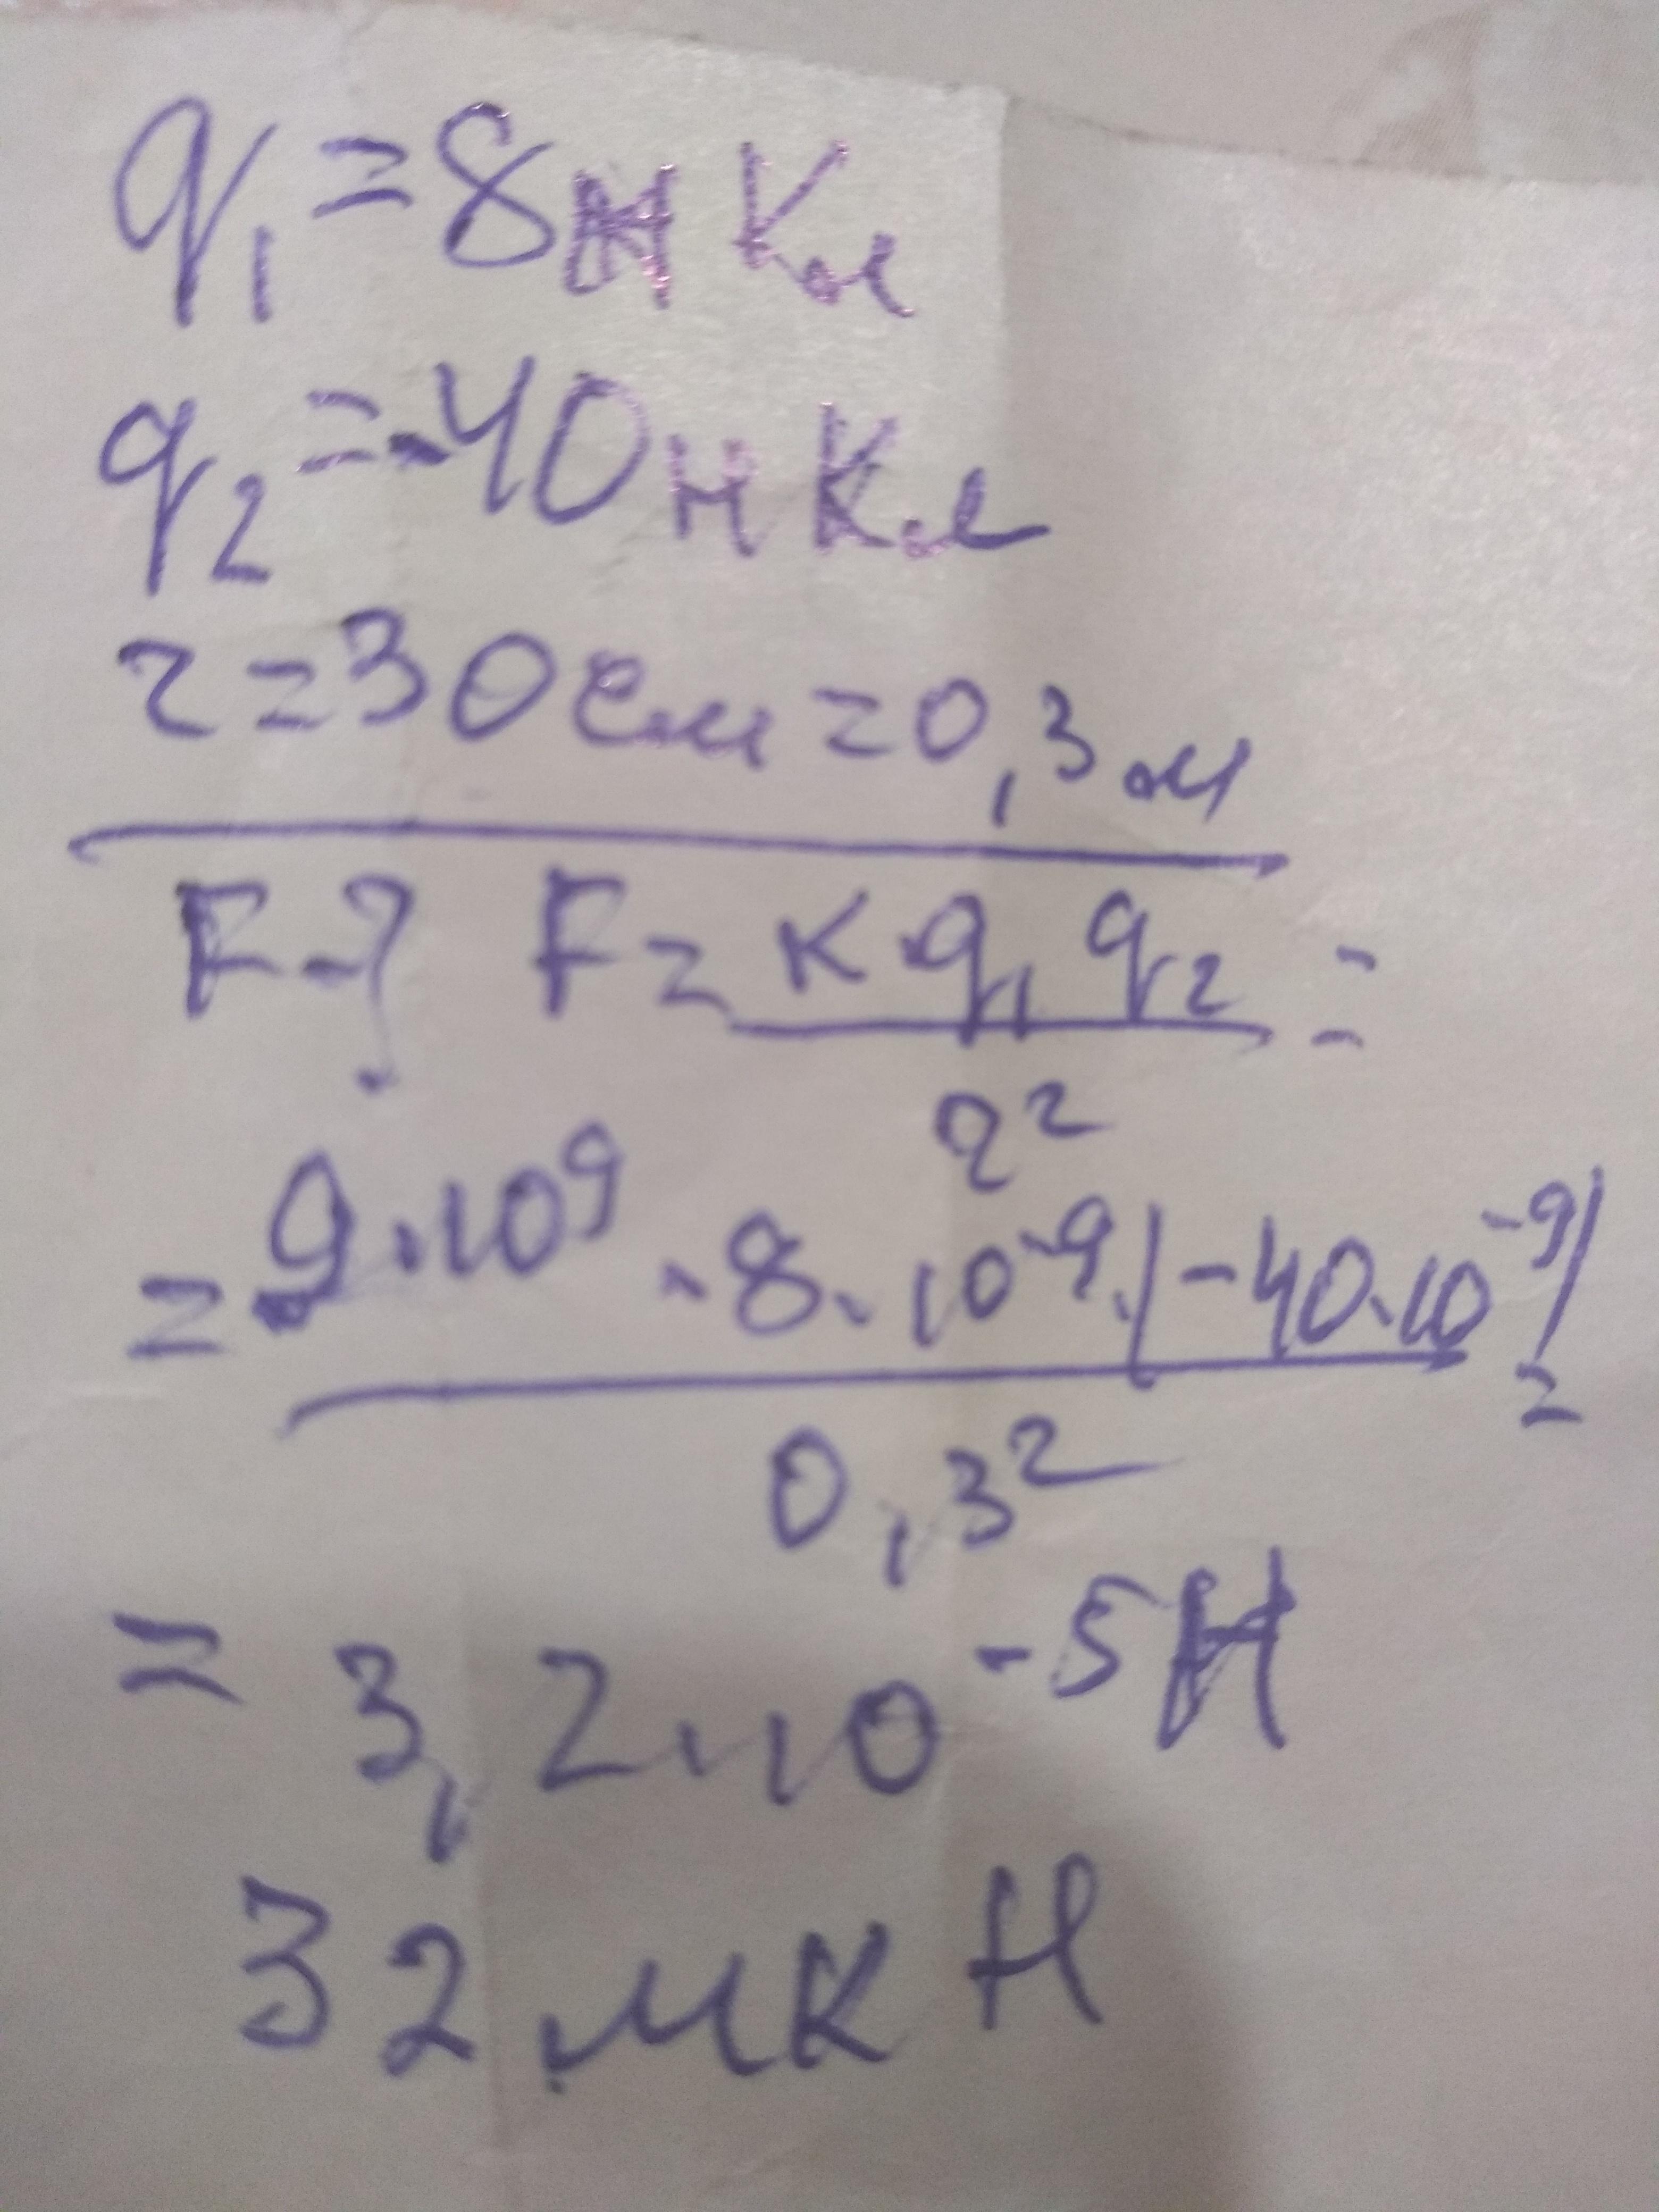 q₁=8нКл
q₂=-40нКл
r=30см=0,3м
F-? F=к·q₁q₂/r²=
=9·10⁹·8·10⁻⁹·|-40·10⁻⁹|/0,3²=
=3,2·10⁻⁵Н
32мкН